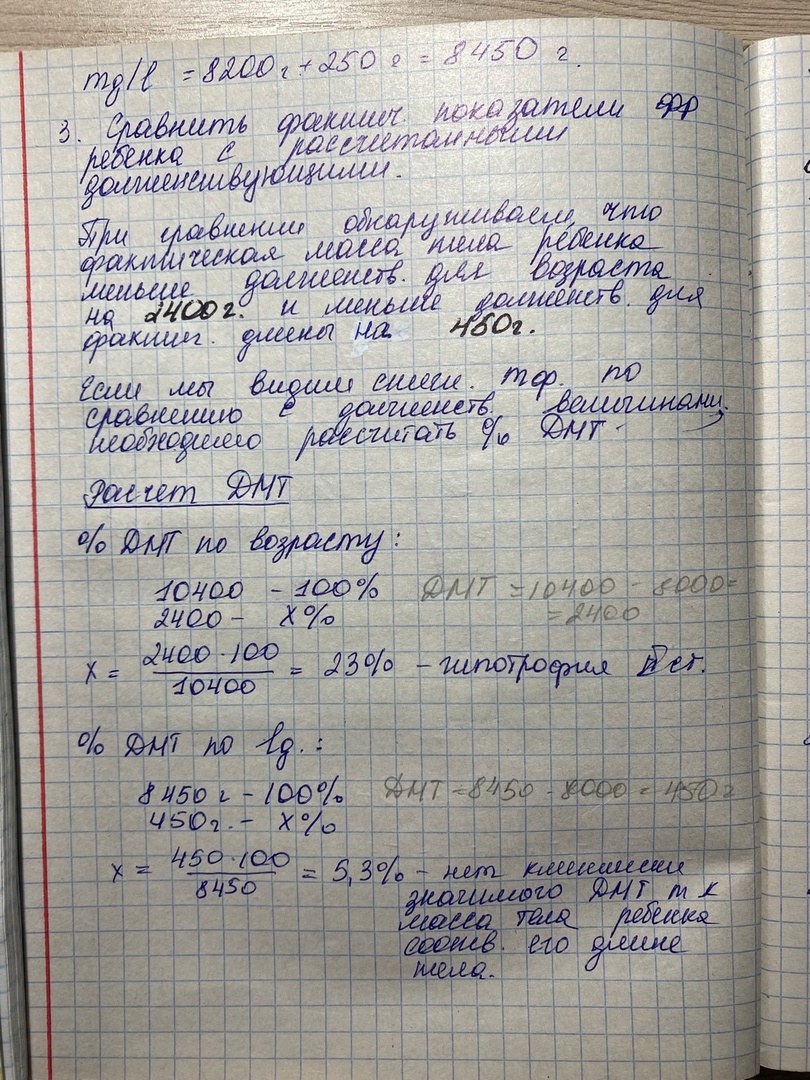 mд/l = 8200 г + 250 г = 8450 г.
3. Сравнить фактич показатели ФР
ребенка с рассчитанными
долженствующими.
При сравнении обнаруживаем, что
фактическая масса тела ребенка
меньше долженств. для возраста
на 2400г. и меньше долженств. для
фактич. длины на 450г.
Если мы видим снижен. mф. по
сравнению с долженств. величинами,
необходимо рассчитать % ДМТ.
Расчет ДМТ
% ДМТ по возрасту:
10400 - 100% ДМТ = 10400 - 8000=
2400 - X% = 2400
X = 2400 · 100 / 10400 = 23% - гипотрофия II ст.
% ДМТ по lд.:
8450 г - 100% ДМТ = 8450 - 8000 = 450 г
450г. - X%
X = 450 · 100 / 8450 = 5,3% - нет клинически
значимого ДМТ т к
масса тела ребенка
соотв. его длине
тела.